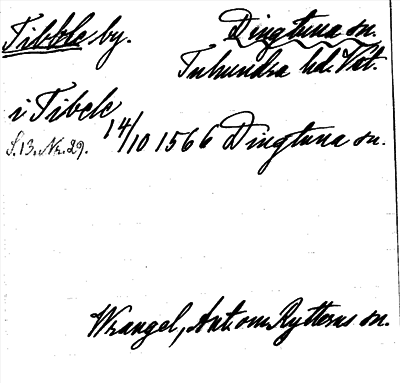 Tibble by.
Dingtuna sn.
Tuhundra hd. Vst.
i Tibele
S. 13. Nr. 29.
14/10 1566 Dingtuna sn.
Wrangel, Ant. om Rytterns sn.